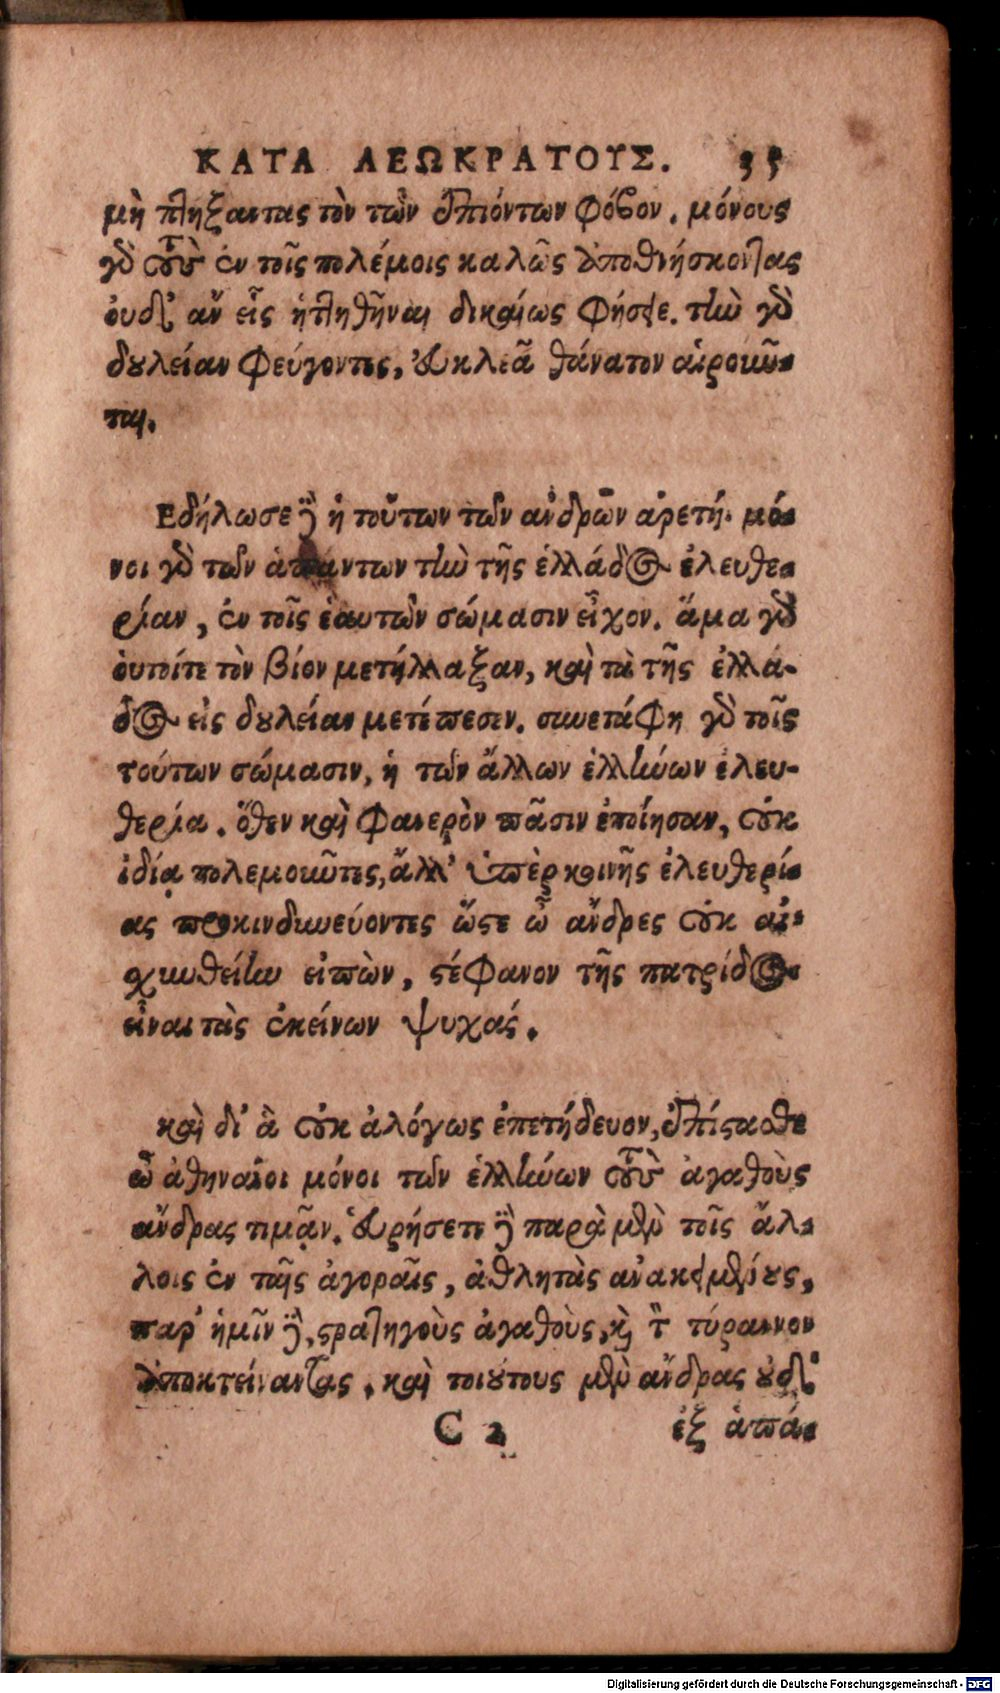 ΚΑΤΑ ΛΕΩΚΡΑΤΟΥΣ. 35
μὴ πλήξαντας τὸν τῶν ἐπιόντων φόβον. μόνους
γὸ τοὺς ἐν τοῖς πολέμοις καλῶς ἀποθνήσκοντας
ουδ' αν εἷς ἡτληθῆναι δικαίως φήσειε. τὴν γὸ
δουλείαν φεύγοντες, ευκλεᾶ θάνατον αἱροῦν-
ται.
Εδήλωσε δὲ ἡ τούτων τῶν ανδρῶν αρετή. μό-
νοι γὸ τῶν ἁπάντων τὴν τῆς ἑλλάδος ἐλευθε-
ρίαν, ἐν τοῖς ἑαυτῶν σώμασιν εἶχον. ἅμα γὸ
οὑτοίτε τὸν βίον μετήλλαξαν, καὶ τὰ τῆς ἑλλά-
δος εἰς δουλείαν μετέπεσεν. συνετάφη γὸ τοῖς
τούτων σώμασιν, ἡ τῶν ἄλλων ἑλλήνων ἐλευ-
θερία. ὅθεν καὶ φανερὸν πᾶσιν ἐποίησαν, οὐκ
ἰδίᾳ πολεμοῦντες, ἄλλ' ὑπὲρ κοινῆς ἐλευθερί-
ας προκινδυνεύοντες ὥστε ὦ ἄνδρες οὐκ αἰ-
σχυνθείην εἰπὼν, στέφανον τῆς πατρίδος
εἶναι τὰς ἐκείνων ψυχάς.
καὶ δι' ἃ οὐκ ἀλόγως ἐπετήδευον, ἐπίστασθε
ὦ ἀθηναῖοι μόνοι τῶν ἑλλήνων τοὺς ἀγαθοὺς
ἄνδρας τιμᾷν. εὑρήσετε δὲ παρὰ μὲν τοῖς ἄλ-
λοις ἐν ταῖς ἀγοραῖς, ἀθλητὰς ανακειμένους,
παρ' ἡμῖν δὲ, στρατηγοὺς ἀγαθοὺς, καὶ τ̀ τύραννον
ἀποκτείναντας. καὶ τοιούτους μὲν ἄνδρας ουδ'
C 2 ἐξ ἁπά-
Digitalisierung gefördert durch die Deutsche Forschungsgemeinschaft - DFG